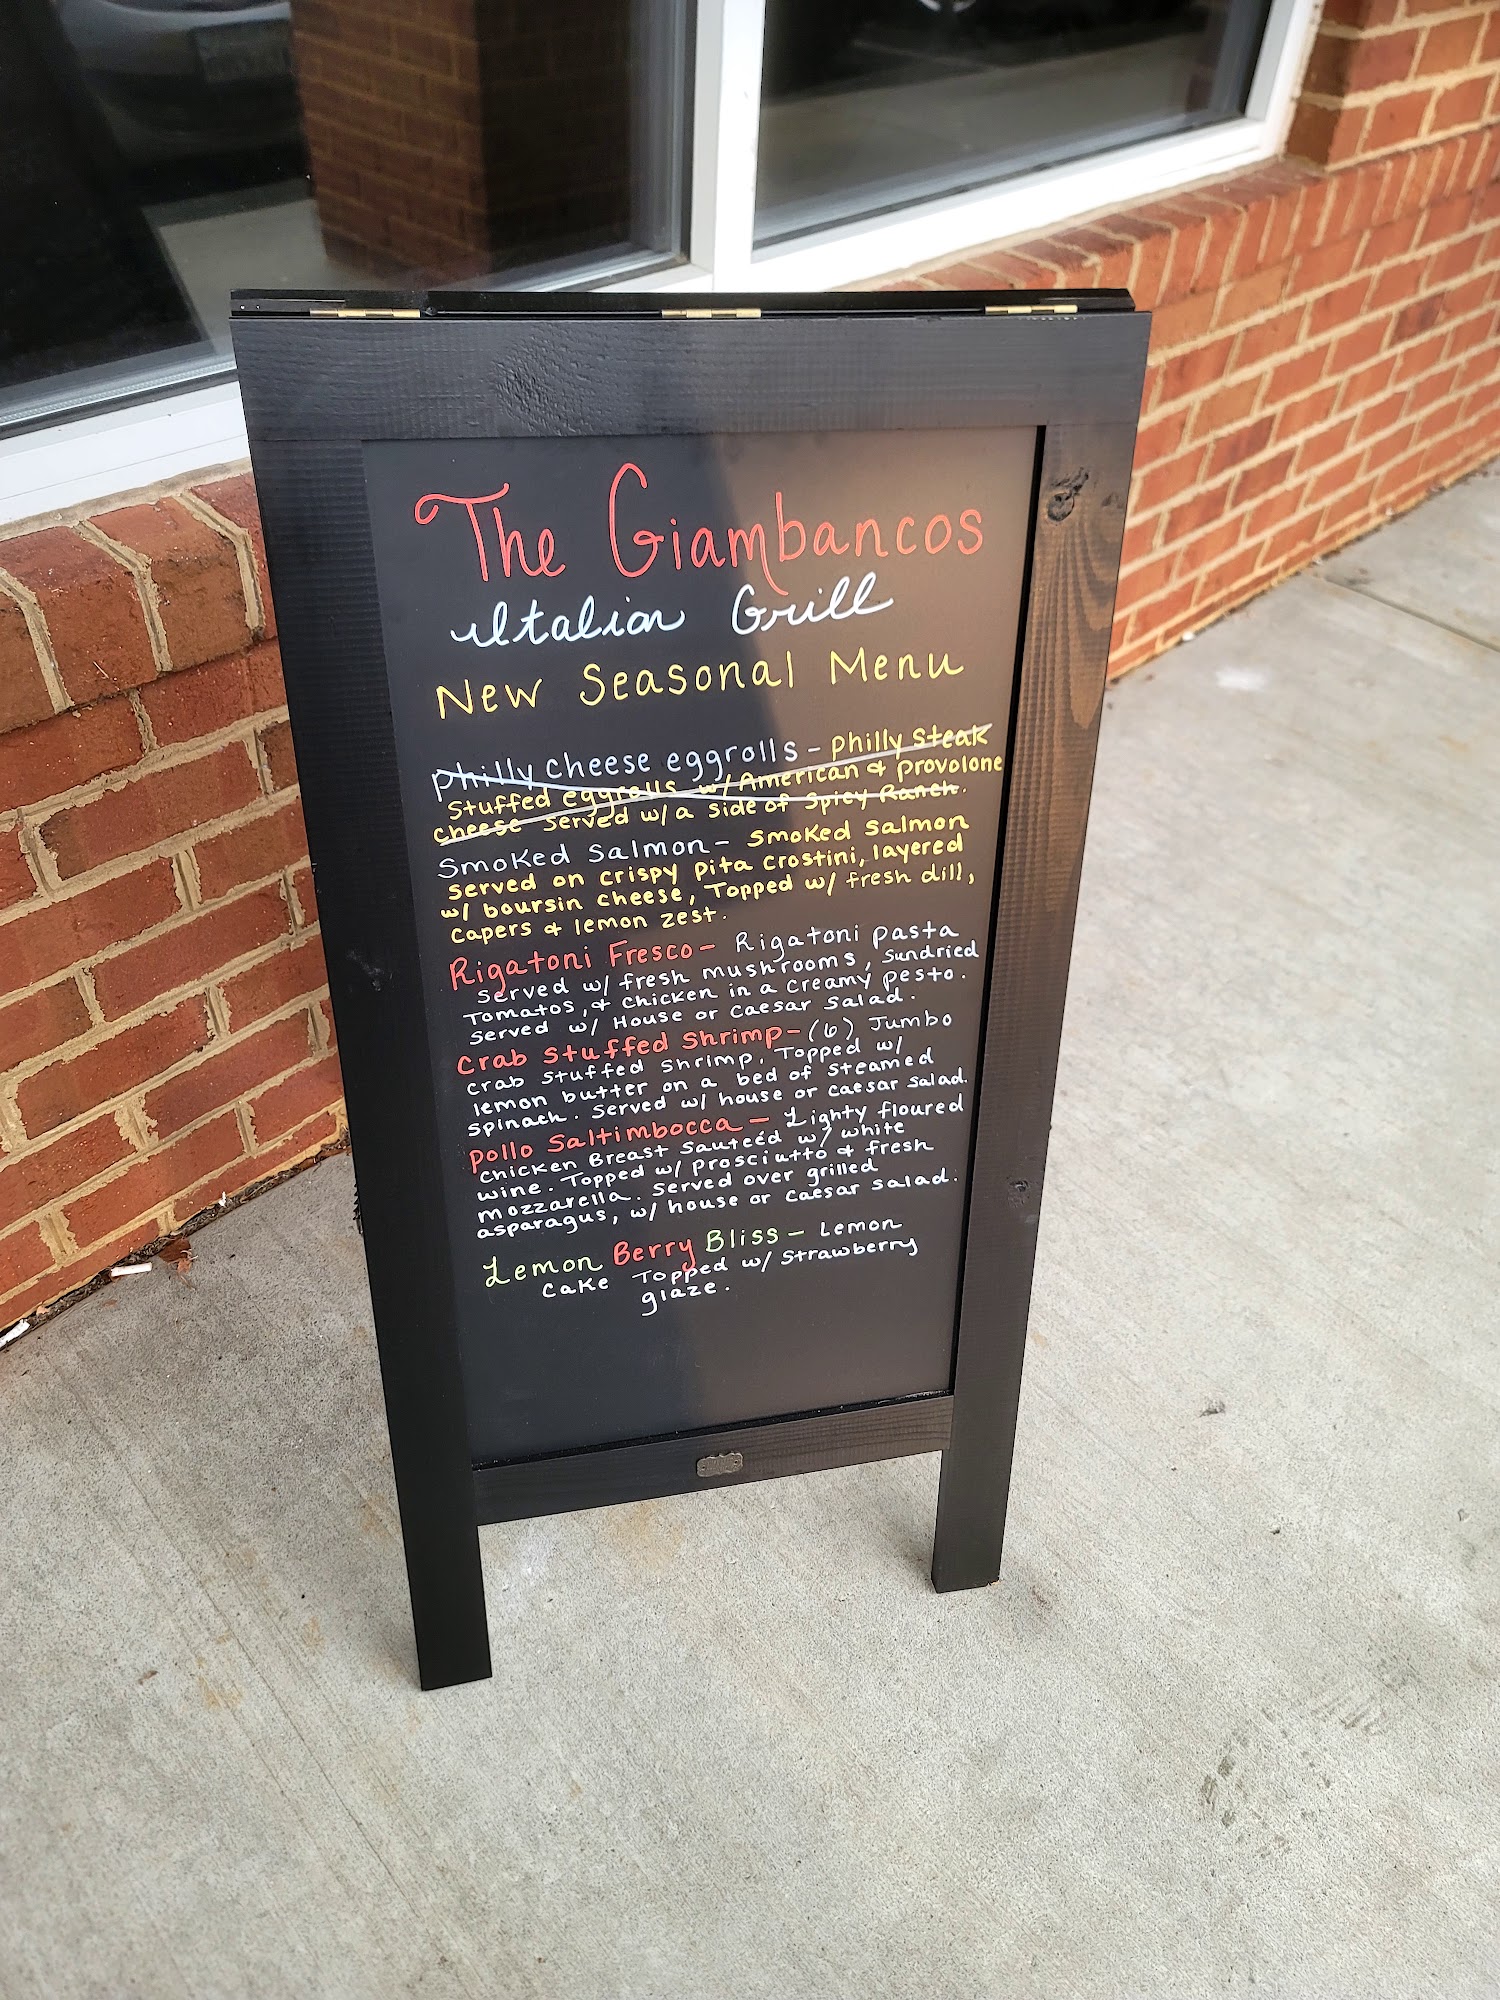 The Giambancos
Italian Grill
New Seasonal Menu
Philly cheese eggrolls - Philly Steak
Stuffed eggrolls w/ American & Provolone
cheese served w/ a side of Spicy Ranch.
Smoked Salmon - Smoked Salmon
served on crispy pita crostini, layered
w/ boursin cheese, Topped w/ fresh dill,
capers & lemon zest.
Rigatoni Fresco - Rigatoni pasta
served w/ fresh mushrooms, sundried
Tomatos, & chicken in a creamy pesto.
served w/ House or Caesar salad.
Crab Stuffed Shrimp - (6) Jumbo
crab stuffed shrimp. Topped w/
lemon butter on a bed of steamed
spinach. Served w/ house or caesar salad.
Pollo Saltimbocca - Lighty floured
chicken Breast sauteéd w/ white
wine. Topped w/ Prosciutto & fresh
mozzarella. Served over grilled
asparagus, w/ house or caesar salad.
Lemon Berry Bliss - Lemon
cake Topped w/ Strawberry
glaze.